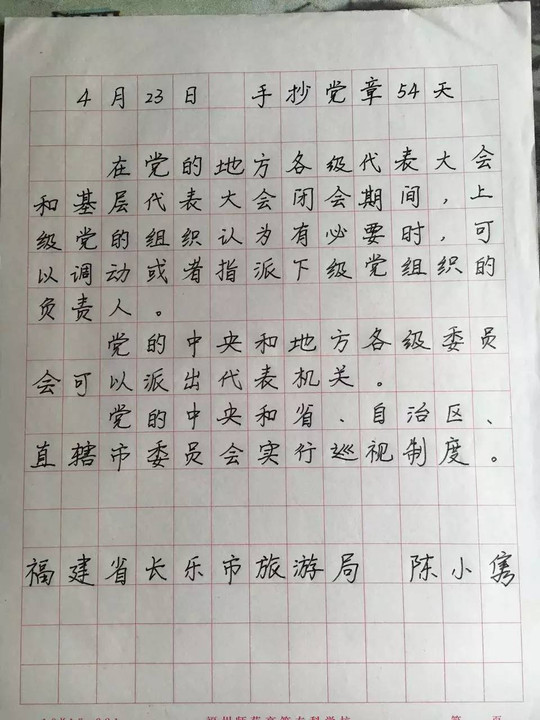 4月23日 手抄党章54天
在党的地方各级代表大会
和基层代表大会闭会期间，上
级党的组织认为有必要时，可
以调动或者指派下级党组织的
负责人。
党的中央和地方各级委员
会可以派出代表机关。
党的中央和省、自治区、
直辖市委员会实行巡视制度。
福建省长乐市旅游局 陈小隽